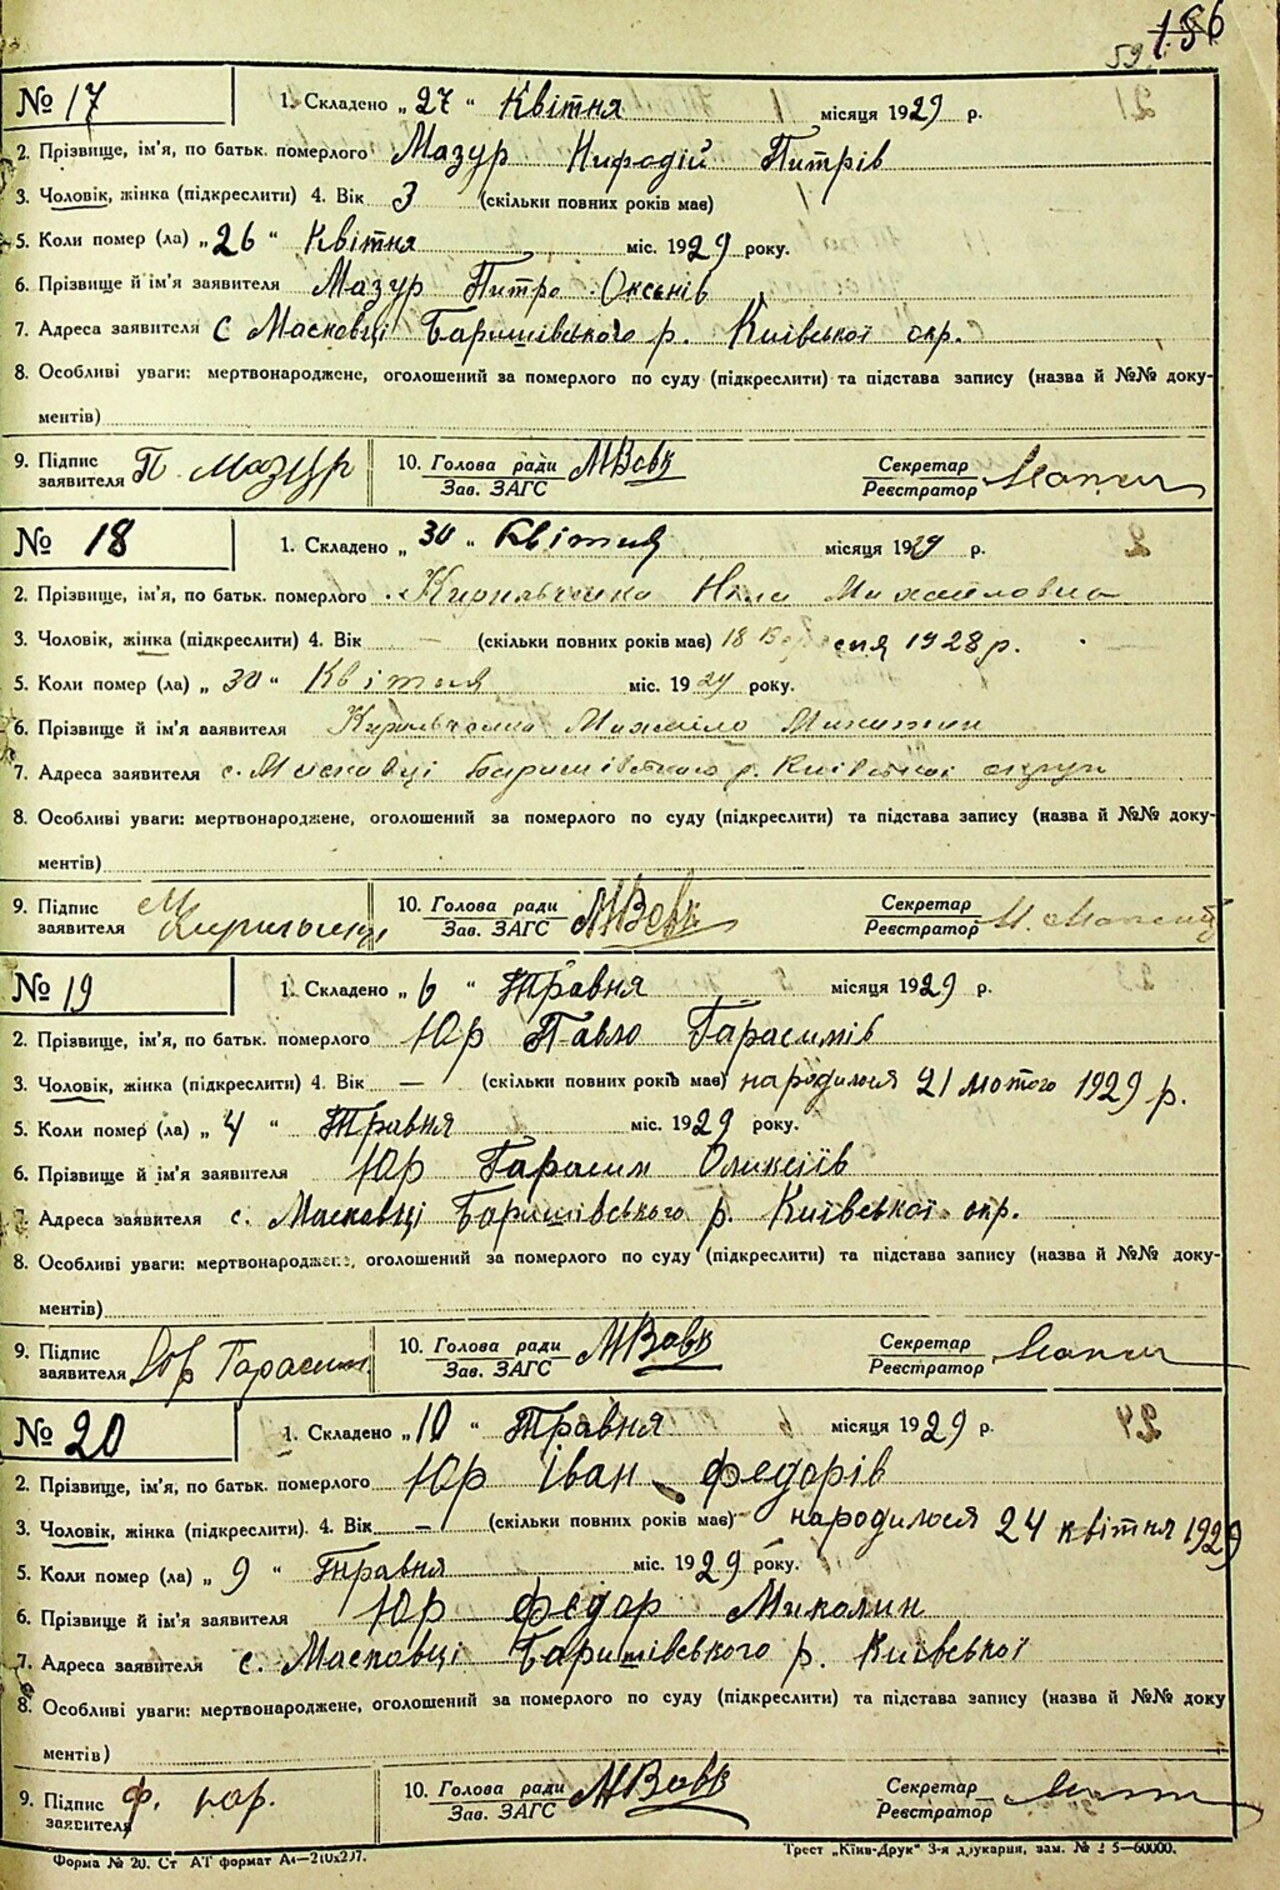 59. 156
№ 17 1. Складено „27“ Квітня місяця 1929 р.
2. Прізвище, ім'я, по батьк. померлого Мазур Нифодій Питрів
3. Чоловік, жінка (підкреслити) 4. Вік 3 (скільки повних років має)
5. Коли помер (ла) „26“ Квітня міс. 1929 року.
6. Прізвище й ім'я заявителя Мазур Питро Оксенів
7. Адреса заявителя С Масковці Баришівського р. Київської окр.
8. Особливі уваги: мертвонароджене, оголошений за померлого по суду (підкреслити) та підстава запису (назва й №№ доку-
ментів)
9. Підпис заявителя П Мазур 10. Голова ради Зав. ЗАГС МВовк Секретар Реєстратор
№ 18 1. Складено „30“ Квітня місяця 1929 р.
2. Прізвище, ім'я, по батьк. померлого Кирильченко Михайловна
3. Чоловік, жінка (підкреслити) 4. Вік — (скільки повних років має) 18 Вересня 1928 р.
5. Коли помер (ла) „30“ Квітня міс. 1929 року.
6. Прізвище й ім'я заявителя Кирильченко Михайло Микитин
7. Адреса заявителя с. Масковці Баришівського р. Київської округи
8. Особливі уваги: мертвонароджене, оголошений за померлого по суду (підкреслити) та підстава запису (назва й №№ доку-
ментів)
9. Підпис заявителя М 10. Голова ради Зав. ЗАГС МВовк Секретар Реєстратор М.
№ 19 1. Складено „6“ Травня місяця 1929 р.
2. Прізвище, ім'я, по батьк. померлого Юр Павло Гарасимів
3. Чоловік, жінка (підкреслити) 4. Вік — (скільки повних років має) народилося 21 лютого 1929 р.
5. Коли помер (ла) „4“ Травня міс. 1929 року.
6. Прізвище й ім'я заявителя Юр Гарасим Оликсіїв
7. Адреса заявителя с. Масковці Баришівського р. Київської окр.
8. Особливі уваги: мертвонароджене, оголошений за померлого по суду (підкреслити) та підстава запису (назва й №№ доку-
ментів)
9. Підпис заявителя Юр Гарасим 10. Голова ради Зав. ЗАГС МВовк Секретар Реєстратор
№ 20 1. Складено „10“ Травня місяця 1929 р.
2. Прізвище, ім'я, по батьк. померлого Юр Іван Федорів
3. Чоловік, жінка (підкреслити). 4. Вік — (скільки повних років має) народилося 24 квітня 1929
5. Коли помер (ла) „9“ Травня міс. 1929 року.
6. Прізвище й ім'я заявителя Юр Федор Миколин
7. Адреса заявителя с. Масковці Баришівського р. Київської
8. Особливі уваги: мертвонароджене, оголошений за померлого по суду (підкреслити) та підстава запису (назва й №№ доку
ментів)
9. Підпис заявителя Ф. Юр. 10. Голова ради Зав. ЗАГС МВовк Секретар Реєстратор
Форма № 20. Ст АТ формат А4—210х297. Трест „Київ-Друк“ 3-я друкарня, зам. №